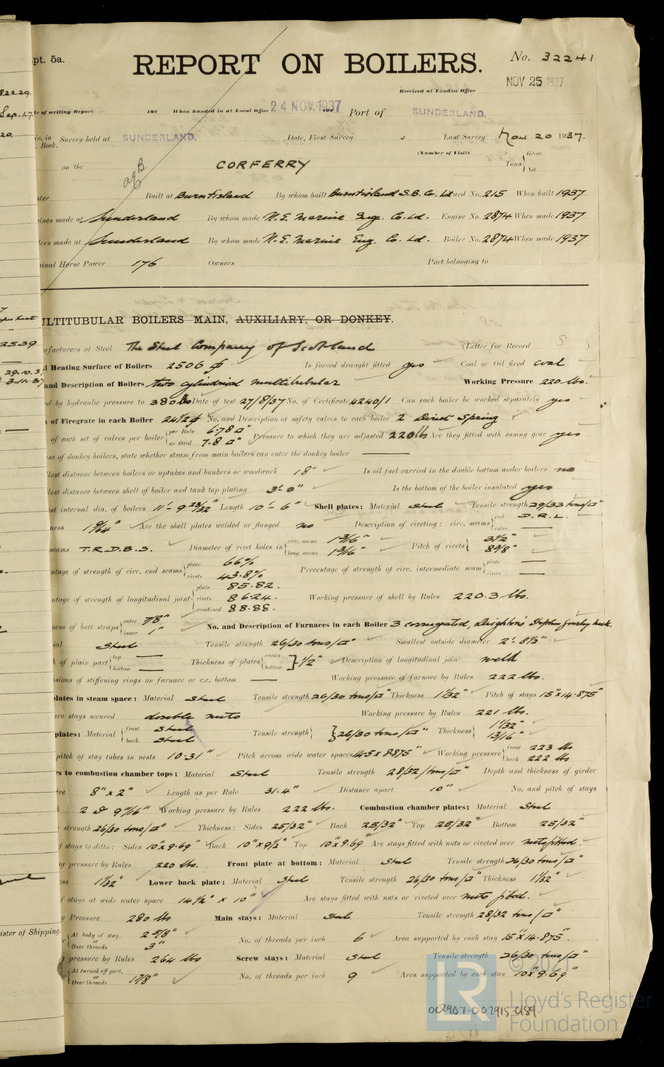 pt. 5a.
REPORT ON BOILERS.
No. 32241
Received at London Office
NOV 25 1937
te of writing Report 193 When handed in at Local Office 24 NOV. 1937 Port of SUNDERLAND.
Survey held at SUNDERLAND. Date, First Survey Last Survey Nov 20 1937.
Book.
(Number of Visits)
on the CORFERRY Tons Gross Net
Built at Burntisland By whom built Burntisland S.B. Co. Ld Yard No. 215 When built 1937
ines made at Sunderland By whom made N.E. Marine Eng. Co. Ld. Engine No. 2874 When made 1937
ers made at Sunderland By whom made N.E. Marine Eng. Co. Ld. Boiler No. 2874 When made 1937
inal Horse Power 176 Owners Port belonging to
ULTITUBULAR BOILERS MAIN, AUXILIARY, OR DONKEY.
nufacturers of Steel The Steel Company of Scotland (Letter for Record S )
l Heating Surface of Boilers 2506 Is forced draught fitted yes Coal or Oil fired coal
and Description of Boilers two cylindrical multitubular Working Pressure 220 lbs.
ed by hydraulic pressure to 380 lb Date of test 27/8/37 No. of Certificate 4240/1 Can each boiler be worked separately yes
of Firegrate in each Boiler No. and Description of safety valves to each boiler 2 Direct Spring
of each set of valves per boiler per Rule 6.78 □" as fitted 7.8 □" Pressure to which they are adjusted 220 lb Are they fitted with easing gear yes
se of donkey boilers, state whether steam from main boilers can enter the donkey boiler
llest distance between boilers or uptakes and bunkers or woodwork 18" Is oil fuel carried in the double bottom under boilers no
llest distance between shell of boiler and tank top plating 3'. 0" Is the bottom of the boiler insulated yes
st internal dia. of boilers 11'- 9 23/32" Length 10'- 6" Shell plates: Material Steel Tensile strength 29/33 tons/□"
ness Are the shell plates welded or flanged no Description of riveting: circ. seams D.R.L.
seams T.R.D.B.S. Diameter of rivet holes in circ. seams 1 3/16" long. seams 1 3/16" Pitch of rivets 3 1/2" 8 3/8"
ntage of strength of circ. end seams plate 66% rivets 43.8% Percentage of strength of circ. intermediate seam plate rivets
ntage of strength of longitudinal joint plate 85.82. rivets 86.24. combined 88.88. Working pressure of shell by Rules 220.3 lbs.
ness of butt straps outer 7/8" inner 1" No. and Description of Furnaces in each Boiler 3 corrugated, Deighton's
ial Steel Tensile strength 26/30 tons/□" Smallest outside diameter 2'- 8 1/2"
of plain part top bottom Thickness of plates crown bottom 1/2" Description of longitudinal joint weld
nsions of stiffening rings on furnace or c.c. bottom Working pressure of furnace by Rules 222 lbs.
lates in steam space: Material Steel Tensile strength 26/30 tons/□" Thickness 1 1/32" Pitch of stays 15" x 14.875"
are stays secured double nuts Working pressure by Rules 221 lbs.
plates: Material front Steel back Steel Tensile strength 26/30 tons/□" Thickness 1 1/32" 13/16"
pitch of stay tubes in nests 10.31" Pitch across wide water spaces 14.5 x 8.875" Working pressure front 223 lbs back 222 lbs
rs to combustion chamber tops: Material Steel Tensile strength 28/32 tons/□" Depth and thickness of girder
tre 8" x 2" Length as per Rule 31.4" Distance apart 10" No. and pitch of stays
2 @ 9 7/16" Working pressure by Rules 222 lbs. Combustion chamber plates: Material Steel
strength 26/30 tons/□" Thickness: Sides 25/32" Back 25/32" Top 25/32" Bottom 25/32"
f stays to ditto: Sides 10" x 9.69" Back 10" x 9 1/2" Top 10" x 9.69 Are stays fitted with nuts or riveted over nuts fitted.
g pressure by Rules 220 lbs. Front plate at bottom: Material Steel Tensile strength 26/30 tons/□"
ess 1 1/32" Lower back plate: Material Steel Tensile strength 26/30 tons/□" Thickness 1 1/32"
f stays at wide water space 14 1/2" x 10" Are stays fitted with nuts or riveted over nuts fitted.
Pressure 280 lbs Main stays: Material Steel Tensile strength 28/32 tons/□"
At body of stay, 2 7/8" or Over threads 3" No. of threads per inch 6 Area supported by each stay 15" x 14.875".
pressure by Rules 264 lbs Screw stays: Material Steel Tensile strength 26/30 tons/□"
At turned off part, or Over threads 1 7/8" No. of threads per inch 9 Area supported by each stay 10" x 9.69"
ister of Shipping.
© 2021
LR Lloyd's Register Foundation
002907-002915-0189